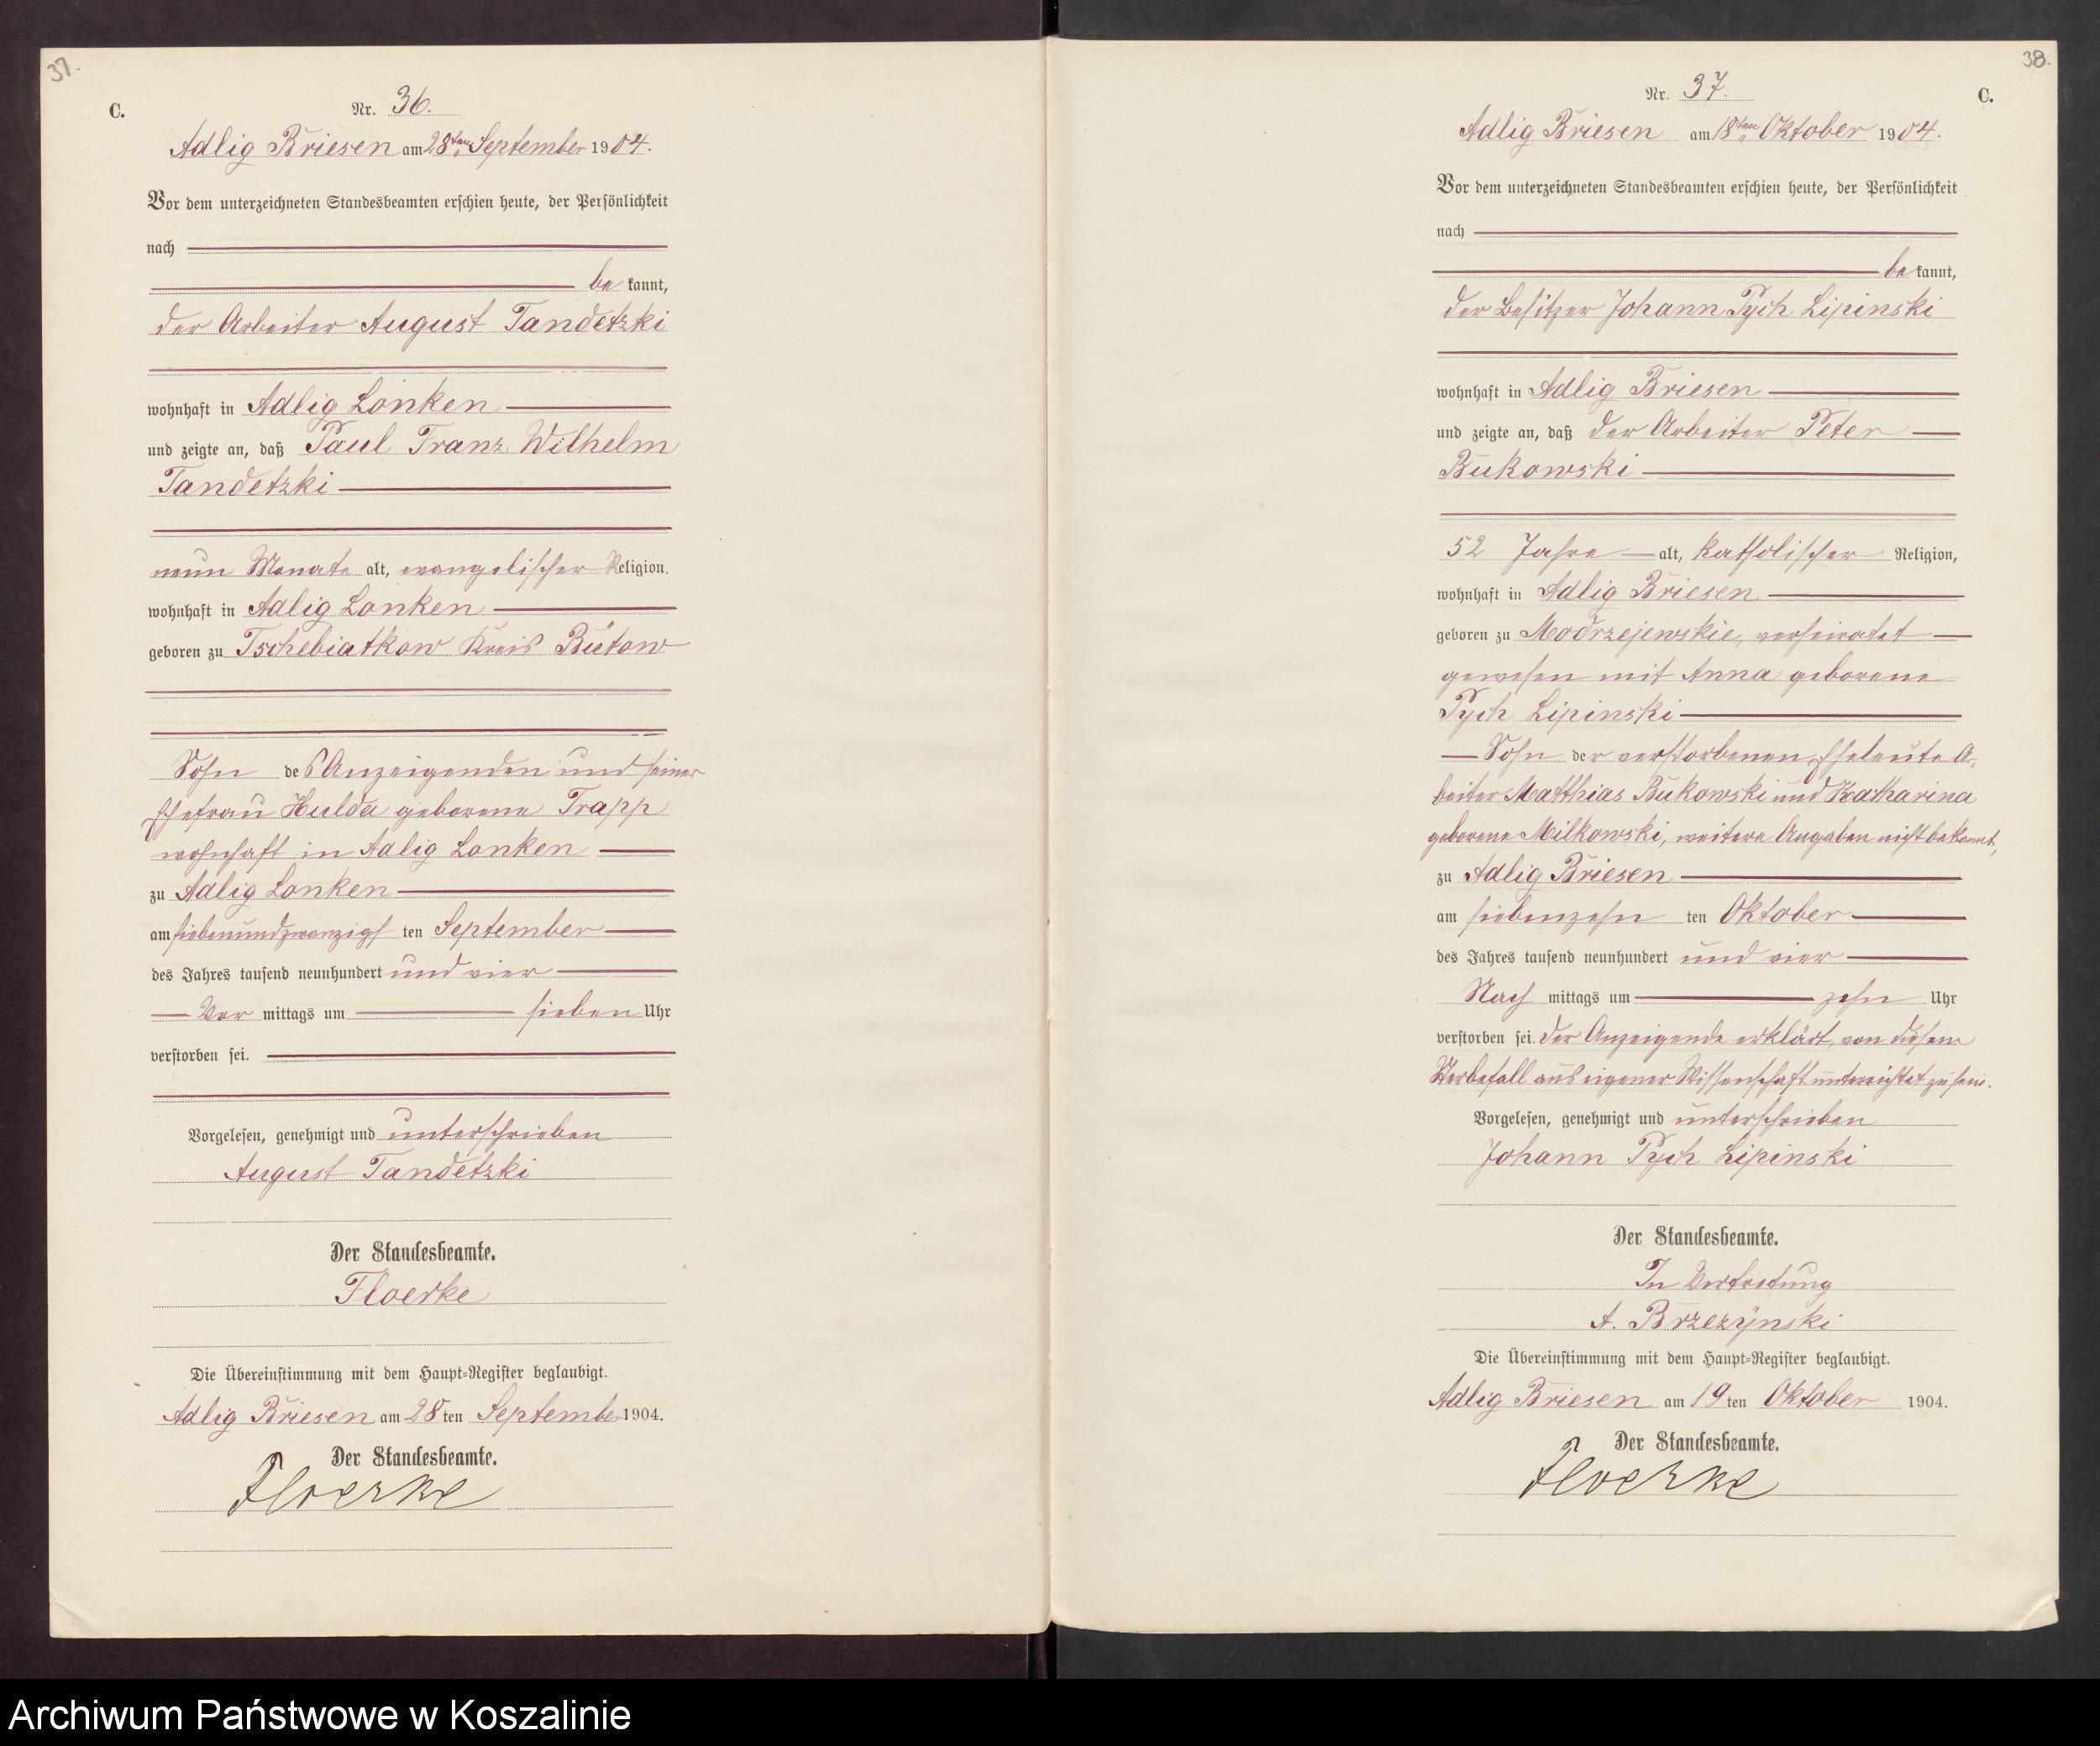 37.
C.
Nr. 36.
Adlig Briesen am 28ten September 1904.
Vor dem unterzeichneten Standesbeamten erschien heute, der Persönlichkeit
nach
be kannt,
der Arbeiter August Tandetzki
wohnhaft in Adlig Lonken
und zeigte an, daß Paul Franz Wilhelm
Tandetzki
neun Monate alt, evangelischer Religion,
wohnhaft in Adlig Lonken
geboren zu Tschebiatkow Kreis Bütow
Sohn des Anzeigenden und seiner
Ehefrau Hulda geborene Trapp
wohnhaft in Adlig Lonken
zu Adlig Lonken
am siebenundzwanzigs ten September
des Jahres tausend neunhundert und vier
Vor mittags um sieben Uhr
verstorben sei.
Vorgelesen, genehmigt und unterschrieben
August Tandetzki
Der Standesbeamte.
Floerke
Die Übereinstimmung mit dem Haupt-Register beglaubigt.
Adlig Briesen am 28 ten September 1904.
Der Standesbeamte.
Floerke
38.
Nr. 37.
C.
Adlig Briesen am 18ten Oktober 1904.
Vor dem unterzeichneten Standesbeamten erschien heute, der Persönlichkeit
nach
be kannt,
der Besitzer Johann Pych Lipinski
wohnhaft in Adlig Briesen
und zeigte an, daß der Arbeiter Peter
Bukowski
52 Jahre alt, katholischer Religion,
wohnhaft in Adlig Briesen
geboren zu Modrzejewskie, verheiratet
gewesen mit Anna geborene
Pych Lipinski
Sohn der verstorbenen Eheleute Ar-
beiter Matthias Bukowski und Katharina
geborene Milkowski, weitere Angaben nicht bekannt,
zu Adlig Briesen
am siebenzehn ten Oktober
des Jahres tausend neunhundert und vier
Nach mittags um zehn Uhr
verstorben sei. Der Anzeigende erklärt, von diesem
Sterbefall aus eigener Wissenschaft unterrichtet zu sein.
Vorgelesen, genehmigt und unterschrieben
Johann Pych Lipinski
Der Standesbeamte.
In Vertretung
A. Brzezynski
Die Übereinstimmung mit dem Haupt-Register beglaubigt.
Adlig Briesen am 19 ten Oktober 1904.
Der Standesbeamte.
Floerke
Archiwum Państwowe w Koszalinie